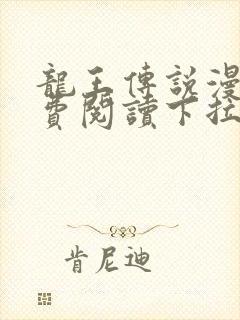 龍王傳說漫
費閱讀下拉
肯尼迪